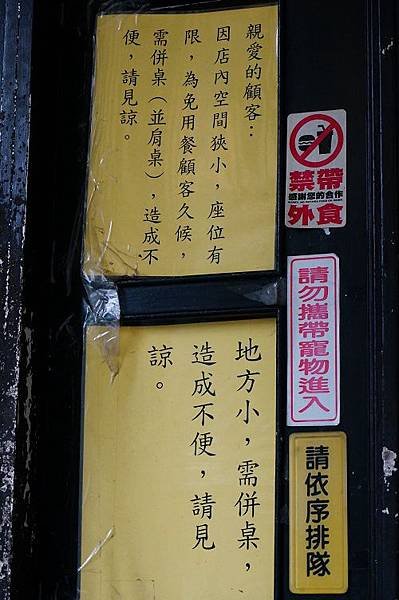 親愛的顧客：
因店內空間狹小，座位有
限，為免用餐顧客久候，
需併桌（並肩桌），造成不
便，請見諒。
地方小，需併桌，
造成不便，請見
諒。
禁帶
感謝您的合作
外食
請勿攜帶寵物進入
請依序排隊